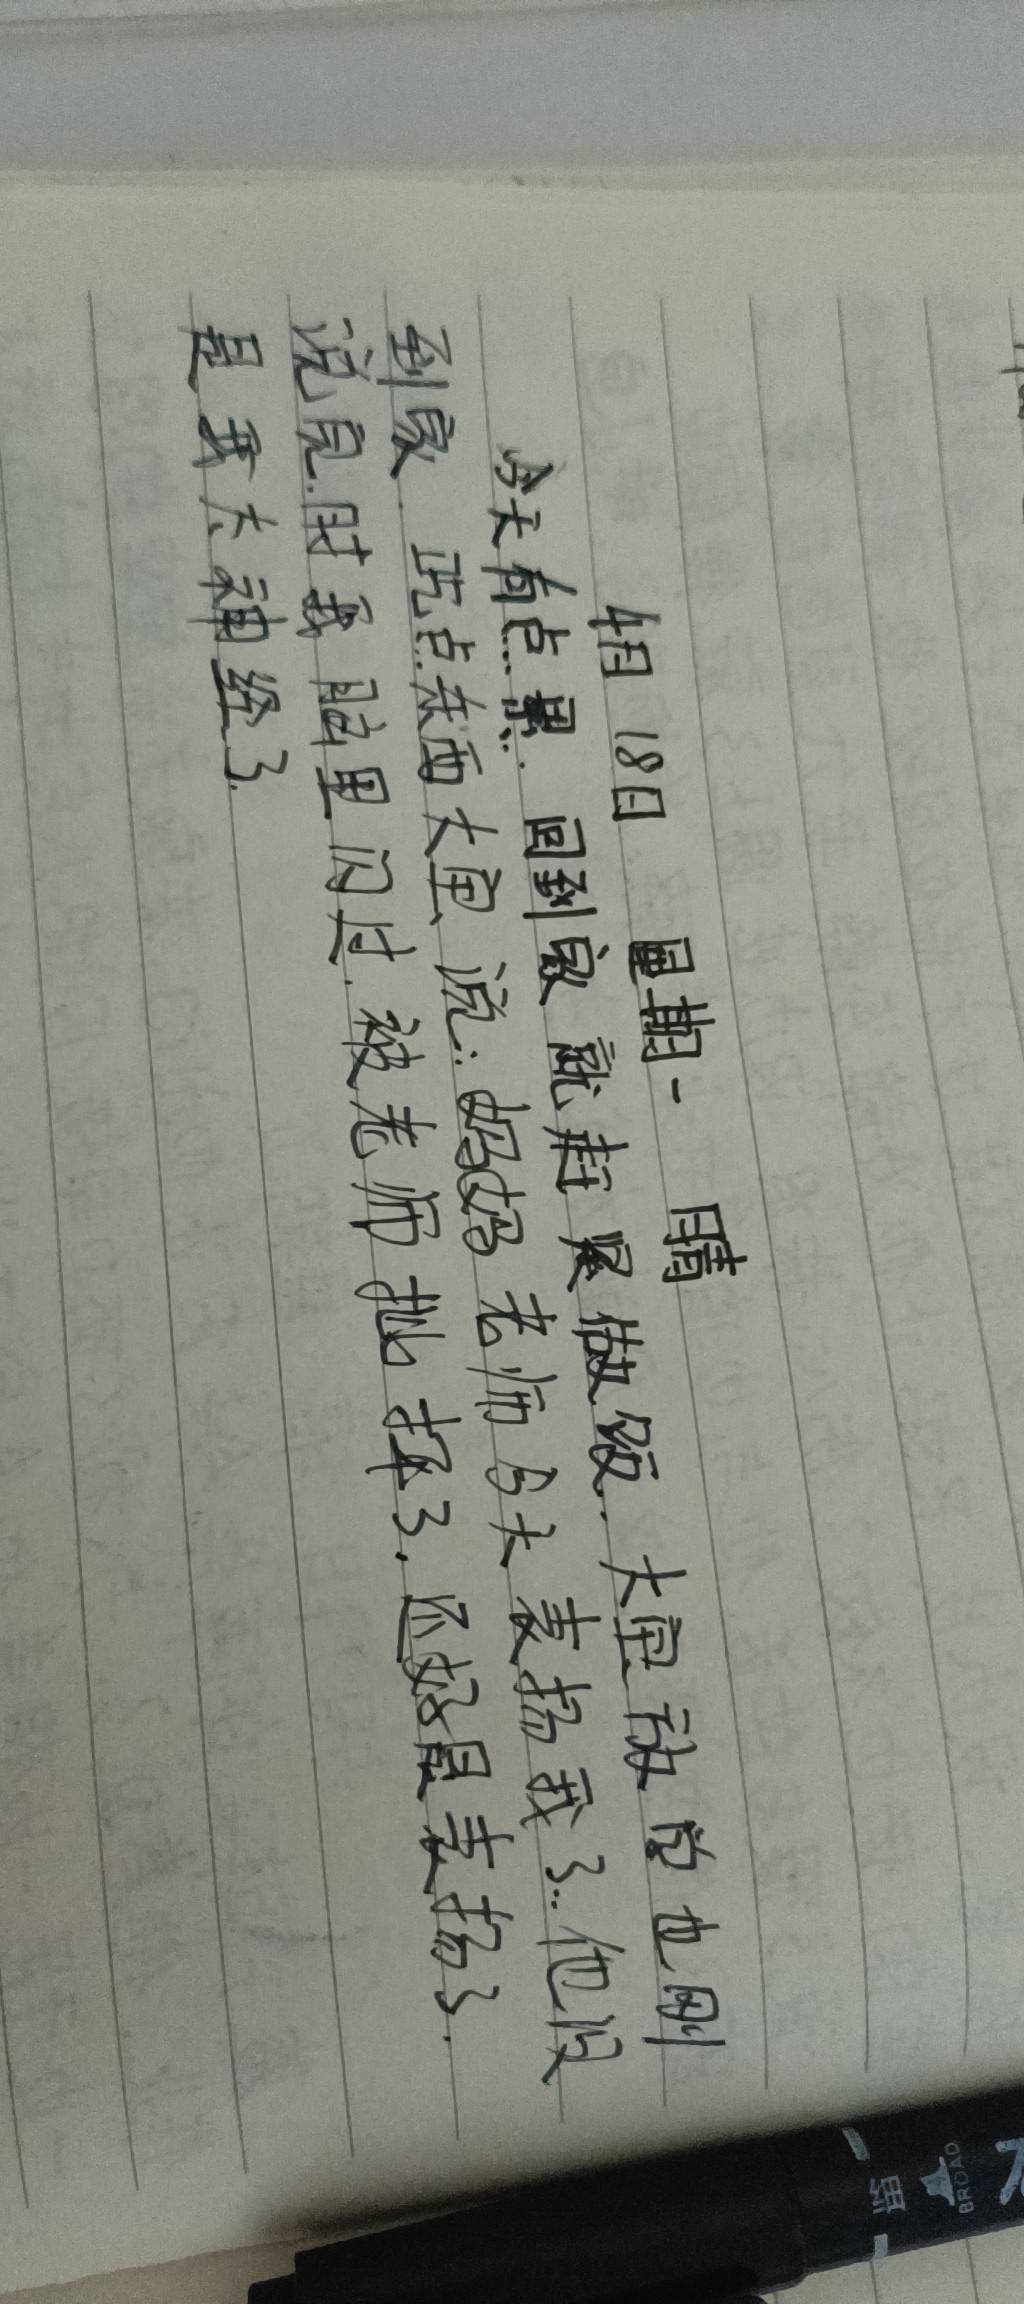 4月18日 星期一 晴
今天有点累. 回到家就赶紧做饭. 大宝放学也刚
到家. 吃点东西大宝说:妈妈老师今天表扬我了..他没
说完.时我脑里闪过.被老师批评了.还好是表扬了.
是我太神经了.
BROAD